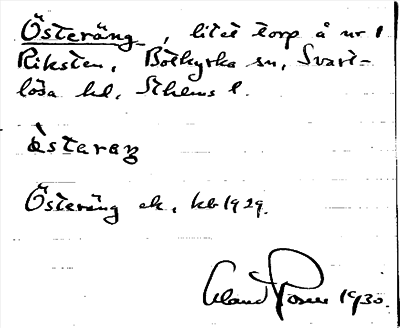 Österäng, litet torp å nr 1
Riksten, Botkyrka sn, Svart-
lösa hd, Sthlms l.
östaraŋ
Österäng ek. kb 1929.
1930.